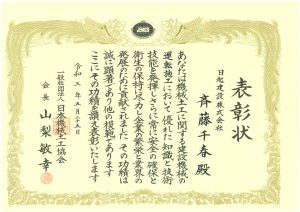 表彰状
日起建設株式会社
斉藤千春殿
あなたは機械土工に関する建設機械の
運転施工において優れた知識と技術
技能を発揮しさらに常に安全の確保と
衛生の保持に尽力し企業の繁栄と業界の
発展のために貢献されました その功績は
誠に顕著であり他の模範であります
ここにその功績を讃え表彰いたします
令和三年五月二十五日
一般社団法人日本機械土工協会
会長 山梨敏幸